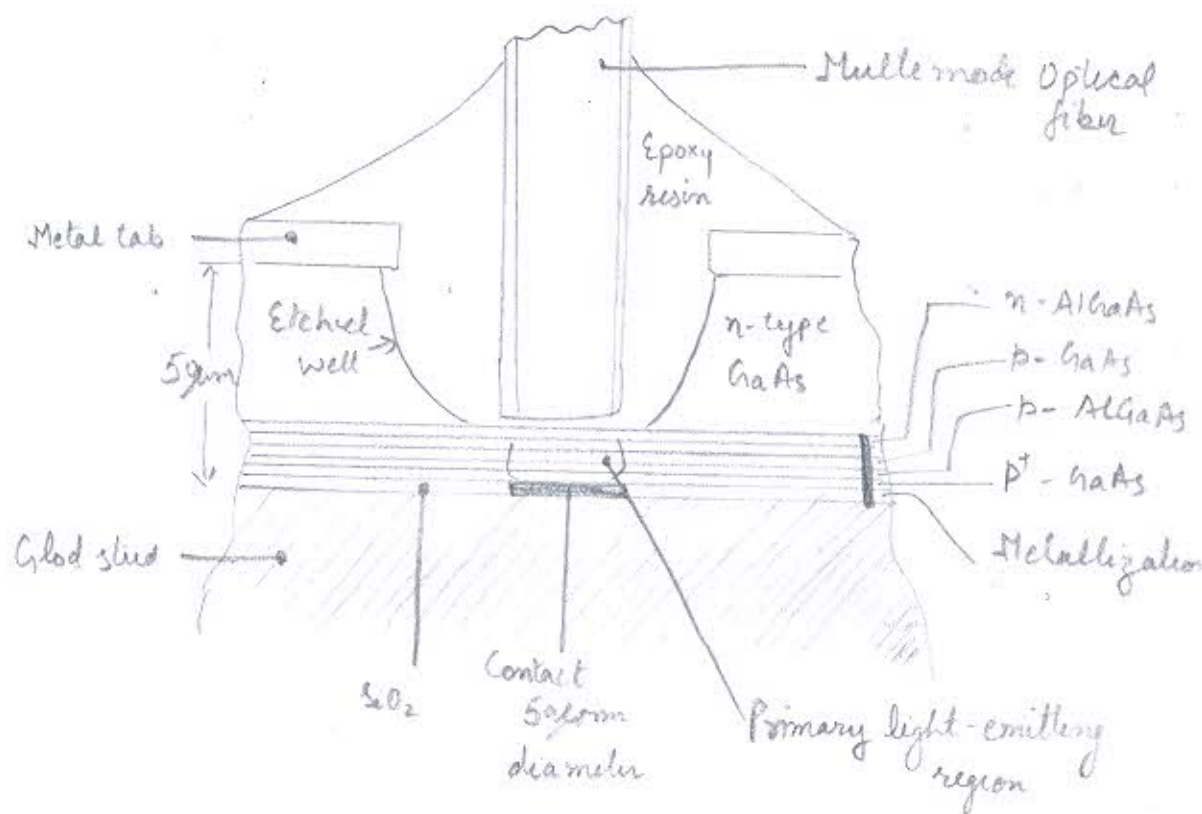 Multemode Optical
fiber
Epoxy
resin
Metal tab
Etched
well
n-type
GaAs
n-AlGaAs
p-GaAs
p-AlGaAs
p+-GaAs
Metallization
Glod stud
SiO2
Contact
50μm
diameter
Primary light-emitting
region